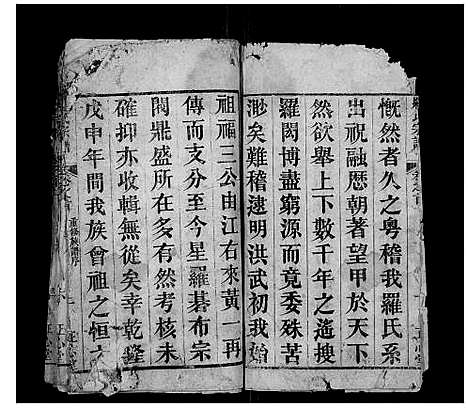 慨然者久之粤稽我羅氏系
出祝融歴朝著望甲於天下
然欲舉上下數千年之遙搜
羅閎博盡窮源而竟委殊苦
渺矣難稽逮明洪武初我始
祖福三公由江右來黃一再
傳而支分至今星羅碁布宗
閥鼎盛所在多有然考核未
確抑亦收輯無從矣幸乾隆
戊申年間我族會祖之恒
重修族譜序